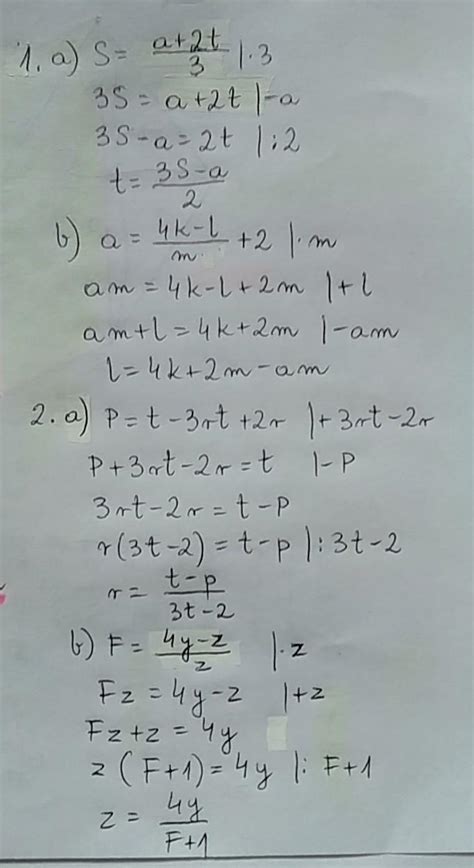 1. a) S = (a+2t)/3 |·3
3S = a+2t |-a
3S-a = 2t |:2
t = (3S-a)/2
b) a = (4k-l)/m + 2 |·m
am = 4k-l+2m |+l
am+l = 4k+2m |-am
l = 4k+2m-am
2. a) p = t-3rt+2r |+3rt-2r
p+3rt-2r = t |-p
3rt-2r = t-p
r(3t-2) = t-p |:3t-2
r = (t-p)/(3t-2)
b) F = (4y-z)/z |·z
Fz = 4y-z |+z
Fz+z = 4y
z(F+1) = 4y |: F+1
z = 4y/(F+1)